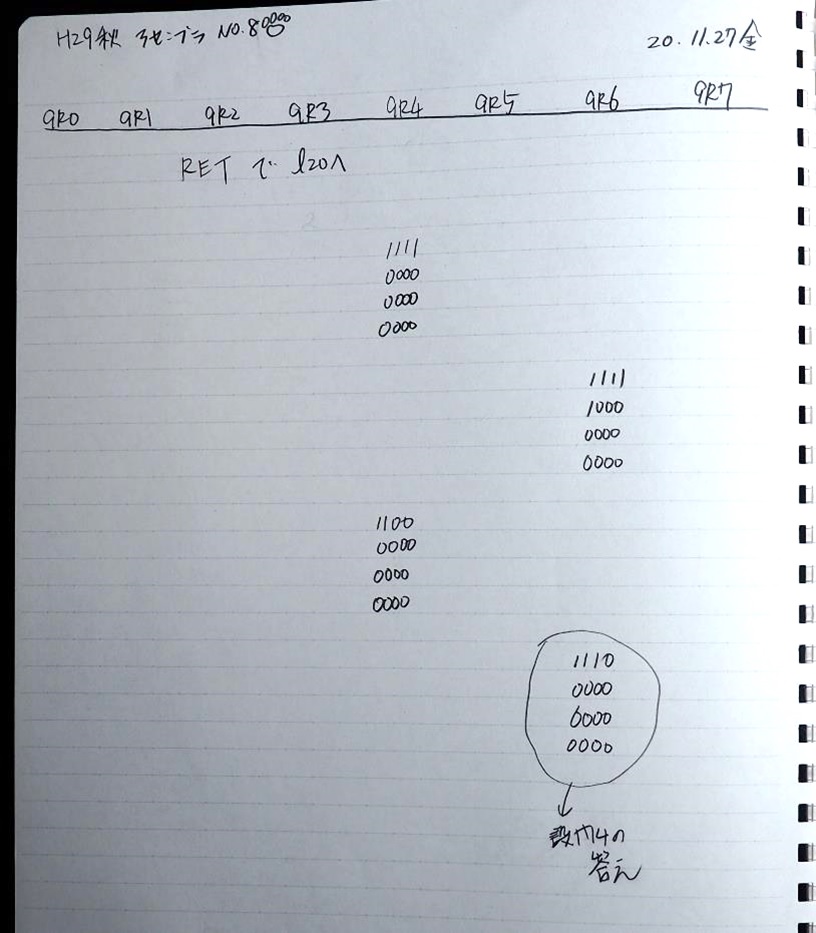 H29秋 アセンブラ NO.8
20.11.27金
GR0 GR1 GR2 GR3 GR4 GR5 GR6 GR7
RET で l20へ
1111
0000
0000
0000
1111
1000
0000
0000
1100
0000
0000
0000
1110
0000
0000
0000
設問4の
答え